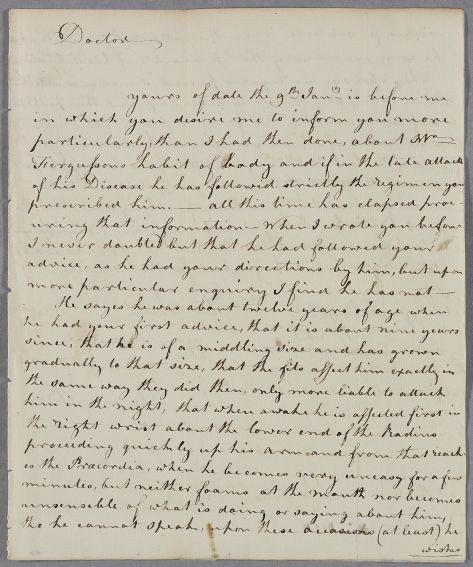 Doctor
yours of date the 9th Janry is before me
in which you desire me to inform you more
particularly, than I had then done, about Wm
Fergussons habit of body and if in the late attack
of his Disease he has followed strictly the regimen you
prescribed him. — all this time has elapsed procu-
uring that information — When I wrote you before
I never doubted but that he had followed your
advice, as he had your directions by him, but upon
more particular enquiry I find he has not —
He sayes he was about twelve years of age when
he had your first advice, that it is about nine years
since, that he is of a middling size and has grown
gradually to that size, that the fits affect him exactly in
the same way they did then, only more liable to attack
him in the night, that when awake he is affected first in
the right wrist about the lower end of the Radius
proceeding quickly up his arm and from that reach
is the Præcordia, when he becomes very uneasy for a few
minutes, but neither foams at the mouth nor becomes
unsensible of what is doing or saying about him,
tho he cannot speak, upon these accasions (at least) he
wishes